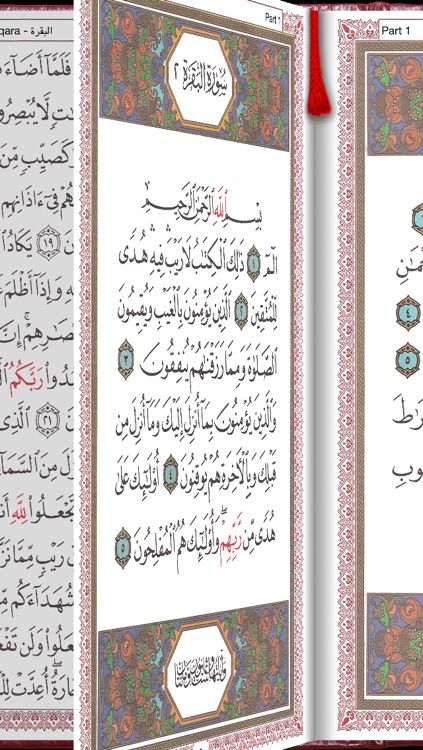 qara - البقرة
Part 1
Part 1
سُورَةُ البَقَرَةِ ٢
بِسۡمِ ٱللَّهِ ٱلرَّحۡمَٰنِ ٱلرَّحِيمِ
الٓمٓ ١ ذَٰلِكَ ٱلۡكِتَٰبُ لَا رَيۡبَۛ فِيهِۛ هُدٗى
لِّلۡمُتَّقِينَ ٢ ٱلَّذِينَ يُؤۡمِنُونَ بِٱلۡغَيۡبِ وَيُقِيمُونَ
ٱلصَّلَوٰةَ وَمِمَّا رَزَقۡنَٰهُمۡ يُنفِقُونَ ٣
وَٱلَّذِينَ يُؤۡمِنُونَ بِمَآ أُنزِلَ إِلَيۡكَ وَمَآ أُنزِلَ مِن
قَبۡلِكَ وَبِٱلۡأٓخِرَةِ هُمۡ يُوقِنُونَ ٤ أُوْلَٰٓئِكَ عَلَىٰ
هُدٗى مِّن رَّبِّهِمۡۖ وَأُوْلَٰٓئِكَ هُمُ ٱلۡمُفۡلِحُونَ ٥
مَٰنِ
٤
٥
رَٰطَ
وبِ
فَلَمَّآ أَضَآءَ
تٖ لَّا يُبۡصِرُو
كَصَيِّبٖ مِّنَ
هُمۡ فِيٓ ءَاذَانِهِم
نَ ١٩ يَكَادُ ٱ
هِ وَإِذَآ أَظۡلَمَ
صَٰرِهِمۡۚ إِنَّ
بُدُواْ رَبَّكُمُ ٱلَّ
نَ ٢١ ٱلَّذِي
لَ مِنَ ٱلسَّمَآ
تَجۡعَلُواْ لِلَّهِ أَن
رَيۡبٖ مِّمَّا نَزَّ
شُهَدَآءَكُم مِّ
عَلُواْ وَلَن تَفۡعَ
جَارَةُۖ أُعِدَّتۡ لِلۡ